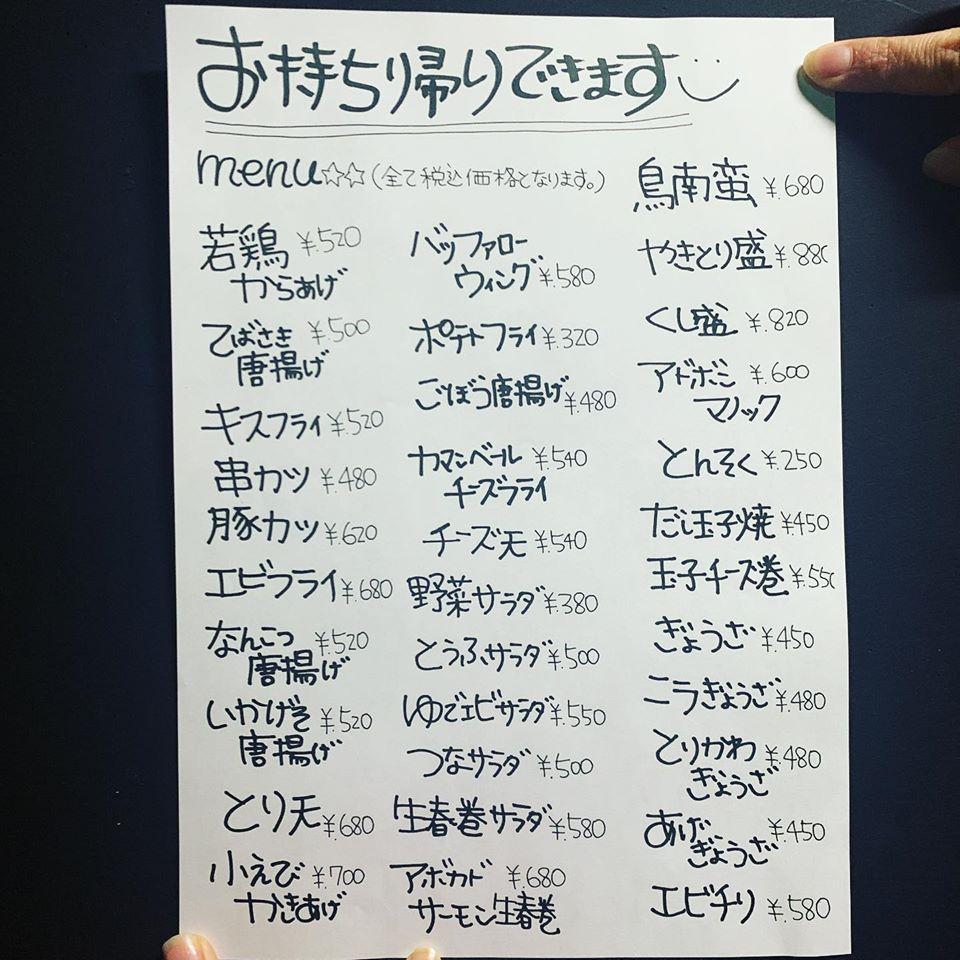 お持ち帰りできます
menu☆☆(全て税込価格となります。)
若鶏 ¥.520
からあげ
てばさき ¥.500
唐揚げ
キスフライ ¥.520
串カツ ¥.480
豚カツ ¥.620
エビフライ ¥.680
なんこつ ¥.520
唐揚げ
いかげそ ¥.520
唐揚げ
とり天 ¥.680
小えび ¥.700
かきあげ
バッファロー
ウィング ¥.580
ポテトフライ ¥.320
ごぼう唐揚げ ¥.480
カマンベール ¥.540
チーズフライ
チーズ天 ¥.540
野菜サラダ ¥.380
とうふサラダ ¥.500
ゆでエビサラダ ¥.550
つなサラダ ¥.500
生春巻サラダ ¥.580
アボカド ¥.680
サーモン生春巻
鳥南蛮 ¥.680
やきとり盛 ¥.880
くし盛 ¥.820
アドボ ¥.600
マノック
とんそく ¥.250
だし玉子焼 ¥.450
玉子チーズ巻 ¥.550
ぎょうざ ¥.450
ニラぎょうざ ¥.480
とりかわ ¥.480
ぎょうざ
あげ ¥.450
ぎょうざ
エビチリ ¥.580